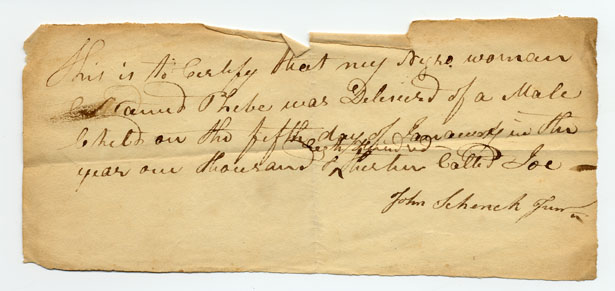 This is to Certify that my Negro woman
Named Phebe was Deliverd of a Male
Child on the fifth day of January in the
eight Hundred
year one thousand & therten Called Joe
John Schenck Junr